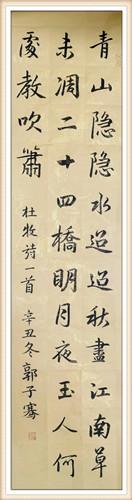 青山隐隐水迢迢秋盡江南草
未凋二十四橋明月夜玉人何
處教吹簫
杜牧詩一首 辛丑冬郭子騫